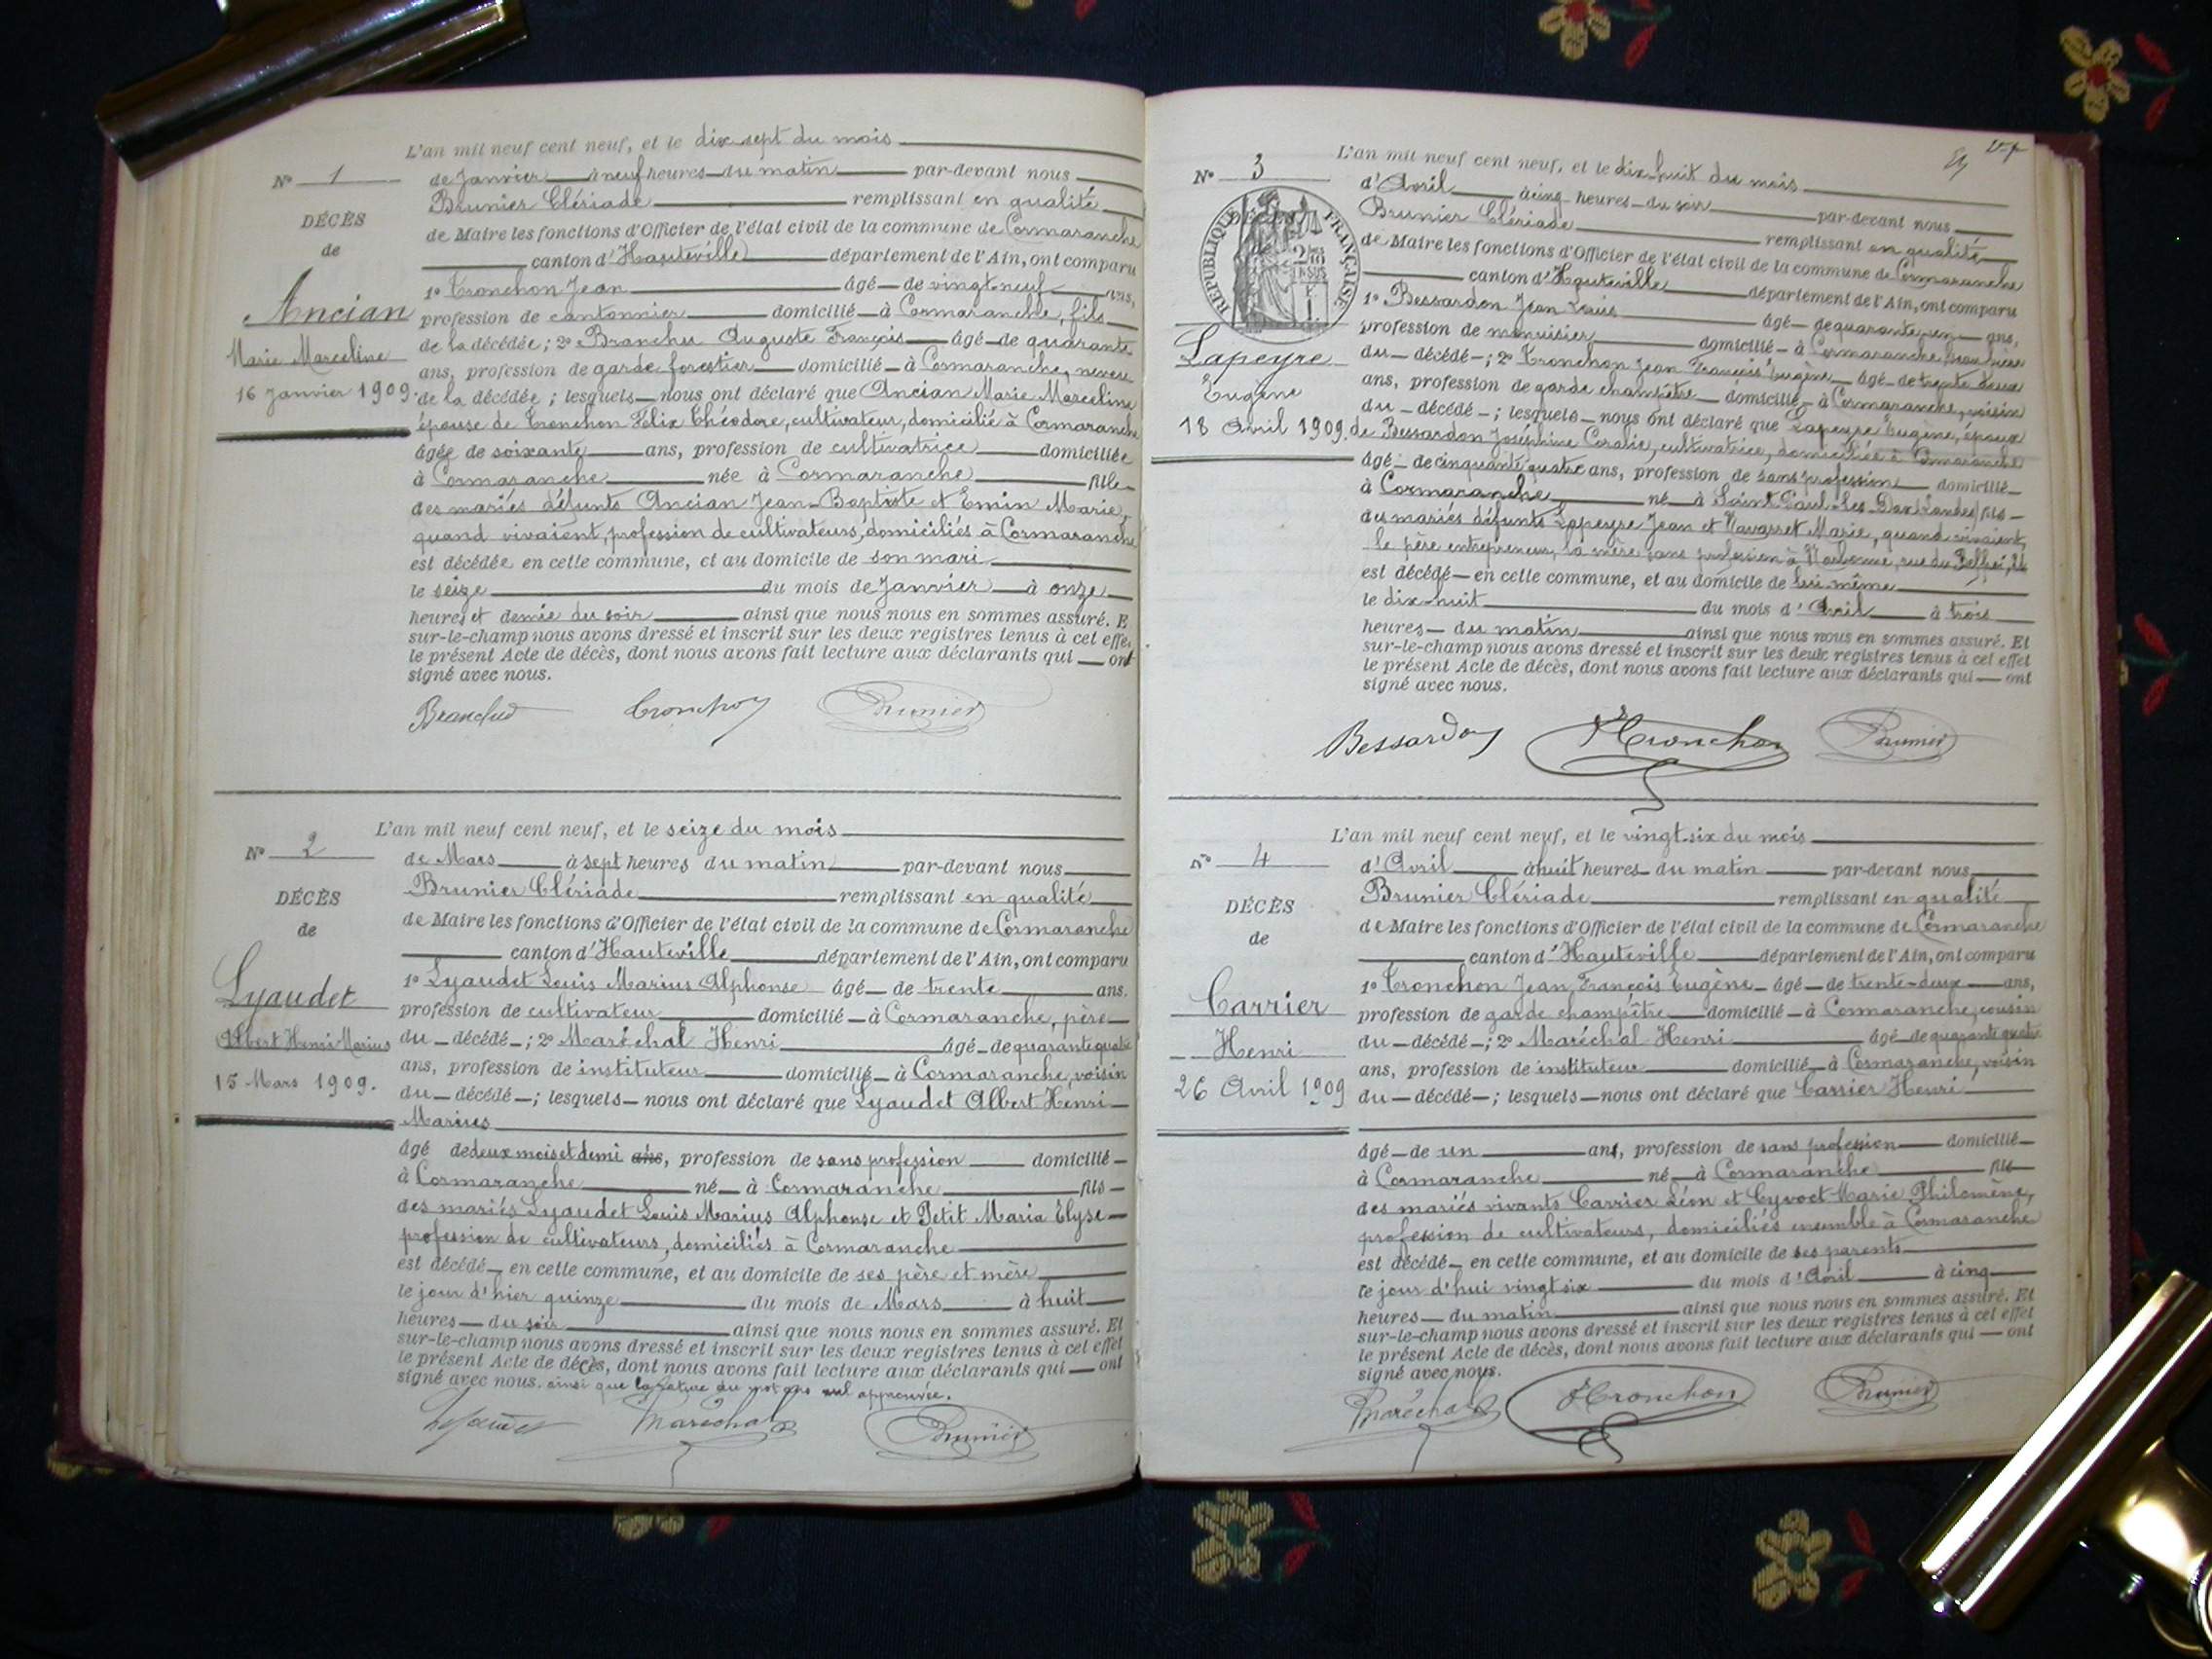 L'an mil neuf cent neuf, et le dix-sept du mois
N° 1
de Janvier à neuf heures du matin par-devant nous
Brunier Clériade remplissant en qualité
DÉCÈS
de Maire les fonctions d'Officier de l'état civil de la commune de Cormaranche
de
canton d'Hauteville département de l'Ain, ont comparu
1° Tronchon Jean âgé de vingt-neuf ans,
Ancian
profession de cantonnier domicilié à Cormaranche, fils
de la décédée; 2° Branchu Auguste François âgé de quarante
Marie Marceline
ans, profession de garde forestier domicilié à Cormaranche, neveu
16 Janvier 1909.
de la décédée; lesquels nous ont déclaré que Ancian Marie Marceline
épouse de Tronchon Félix Théodore, cultivateur, domicilié à Cormaranche
âgée de soixante ans, profession de cultivatrice domiciliée
à Cormaranche née à Cormaranche fille
des mariés défunts Ancian Jean-Baptiste et Emin Marie,
quand vivaient, profession de cultivateurs, domiciliés à Cormaranche
est décédée en cette commune, et au domicile de son mari
le seize du mois de Janvier à onze
heures et demie du soir ainsi que nous nous en sommes assuré. E
sur-le-champ nous avons dressé et inscrit sur les deux registres tenus à cet effe
le présent Acte de décès, dont nous avons fait lecture aux déclarants qui ont
signé avec nous.
Branchu Tronchon Brunier
L'an mil neuf cent neuf, et le seize du mois
N° 2
de Mars à sept heures du matin par-devant nous
Brunier Clériade remplissant en qualité
DÉCÈS
de Maire les fonctions d'Officier de l'état civil de la commune de Cormaranche
de
canton d'Hauteville département de l'Ain, ont comparu
1° Lyaudet Louis Marius Alphonse âgé de trente ans.
Lyaudet
profession de cultivateur domicilié à Cormaranche, père
Albert Henri Marius
du décédé; 2° Maréchal Henri âgé de quarante quatre
ans, profession de instituteur domicilié à Cormaranche, voisin
15 Mars 1909.
du décédé; lesquels nous ont déclaré que Lyaudet Albert Henri
Marius
âgé de deux mois et demi ans, profession de sans profession domicilié
à Cormaranche né à Cormaranche fils
des mariés Lyaudet Louis Marius Alphonse et Petit Maria Élyse
profession de cultivateurs, domiciliés à Cormaranche
est décédé en cette commune, et au domicile de ses père et mère
le jour d'hier quinze du mois de Mars à huit
heures du soir ainsi que nous nous en sommes assuré. Et
sur-le-champ nous avons dressé et inscrit sur les deux registres tenus à cet effet
le présent Acte de décès, dont nous avons fait lecture aux déclarants qui ont
signé avec nous. ainsi que la rature du mot ans nul approuvée.
Maréchal Brunier
L'an mil neuf cent neuf, et le dix-huit du mois
N° 3
d'Avril à cinq heures du soir par-devant nous
Brunier Clériade remplissant en qualité
RÉPUBLIQUE FRANÇAISE
de Maire les fonctions d'Officier de l'état civil de la commune de Cormaranche
canton d'Hauteville département de l'Ain, ont comparu
1° Bessardon Jean Louis âgé de quarante-un ans,
profession de menuisier domicilié à Cormaranche, beau-frère
Lapeyre
du décédé; 2° Tronchon Jean François Eugène âgé de trente deux
Eugène
ans, profession de garde champêtre domicilié à Cormaranche, voisin
du décédé; lesquels nous ont déclaré que Lapeyre Eugène, époux
18 Avril 1909.
de Bessardon Joséphine Coralie, cultivatrice, domiciliée à Cormaranche
âgé de cinquante quatre ans, profession de sans profession domicilié
à Cormaranche né à Saint-Paul-les-Dax (Landes) fils
des mariés défunts Lapeyre Jean et Marie, quand vivaient,
le père entrepreneur, la mère sans profession à Narbonne, rue du
est décédé en cette commune, et au domicile de lui même
le dix-huit du mois d'Avril à trois
heures du matin ainsi que nous nous en sommes assuré. Et
sur-le-champ nous avons dressé et inscrit sur les deux registres tenus à cet effet
le présent Acte de décès, dont nous avons fait lecture aux déclarants qui ont
signé avec nous.
Bessardon Tronchon Brunier
L'an mil neuf cent neuf, et le vingt-six du mois
N° 4
d'Avril à huit heures du matin par-devant nous
Brunier Clériade remplissant en qualité
DÉCÈS
de Maire les fonctions d'Officier de l'état civil de la commune de Cormaranche
de
canton d'Hauteville département de l'Ain, ont comparu
1° Tronchon Jean François Eugène âgé de trente-deux ans,
Carrier
profession de garde champêtre domicilié à Cormaranche, cousin
Henri
du décédé; 2° Maréchal Henri âgé de quarante quatre
ans, profession de instituteur domicilié à Cormaranche, voisin
26 Avril 1909
du décédé; lesquels nous ont déclaré que Carrier Henri
âgé de un an, profession de sans profession domicilié
à Cormaranche né à Cormaranche fils
des mariés vivants Carrier Léon et Cyvoct Marie Philomène,
profession de cultivateurs, domiciliés ensemble à Cormaranche
est décédé en cette commune, et au domicile de ses parents
le jour d'hui vingt six du mois d'Avril à cinq
heures du matin ainsi que nous nous en sommes assuré. Et
sur-le-champ nous avons dressé et inscrit sur les deux registres tenus à cet effet
le présent Acte de décès, dont nous avons fait lecture aux déclarants qui ont
signé avec nous.
Maréchal Tronchon Brunier